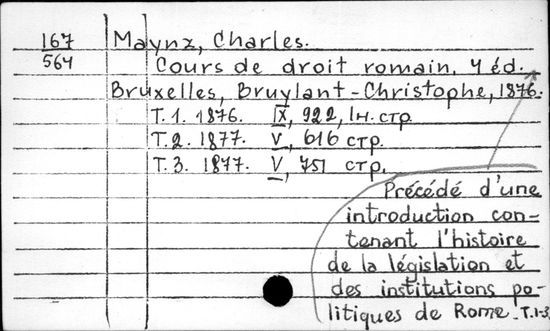 167
564
Maynz, Charles.
Cours de droit romain. 4 éd.
Bruxelles, Bruylant-Christophe, 1876.
T. 1. 1876. IX, 922, 1н. стр.
T. 2. 1877. V, 616 стр.
T. 3. 1877. V, 751 стр.
Précédé d'une
introduction con-
tenant l'histoire
de la législation et
des institutions po-
litiques de Rome. T. 1-3.